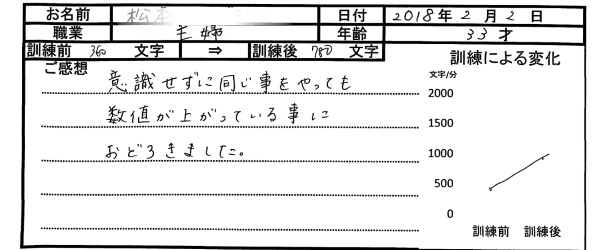 お名前 松本 日付 2018年2月2日
職業 主婦 年齢 33才
訓練前 360 文字 ⇒ 訓練後 780 文字
ご感想
意識せずに同じ事をやっても
数値が上がっている事に
おどろきました。
訓練による変化
文字/分
2000
1500
1000
500
0
訓練前 訓練後